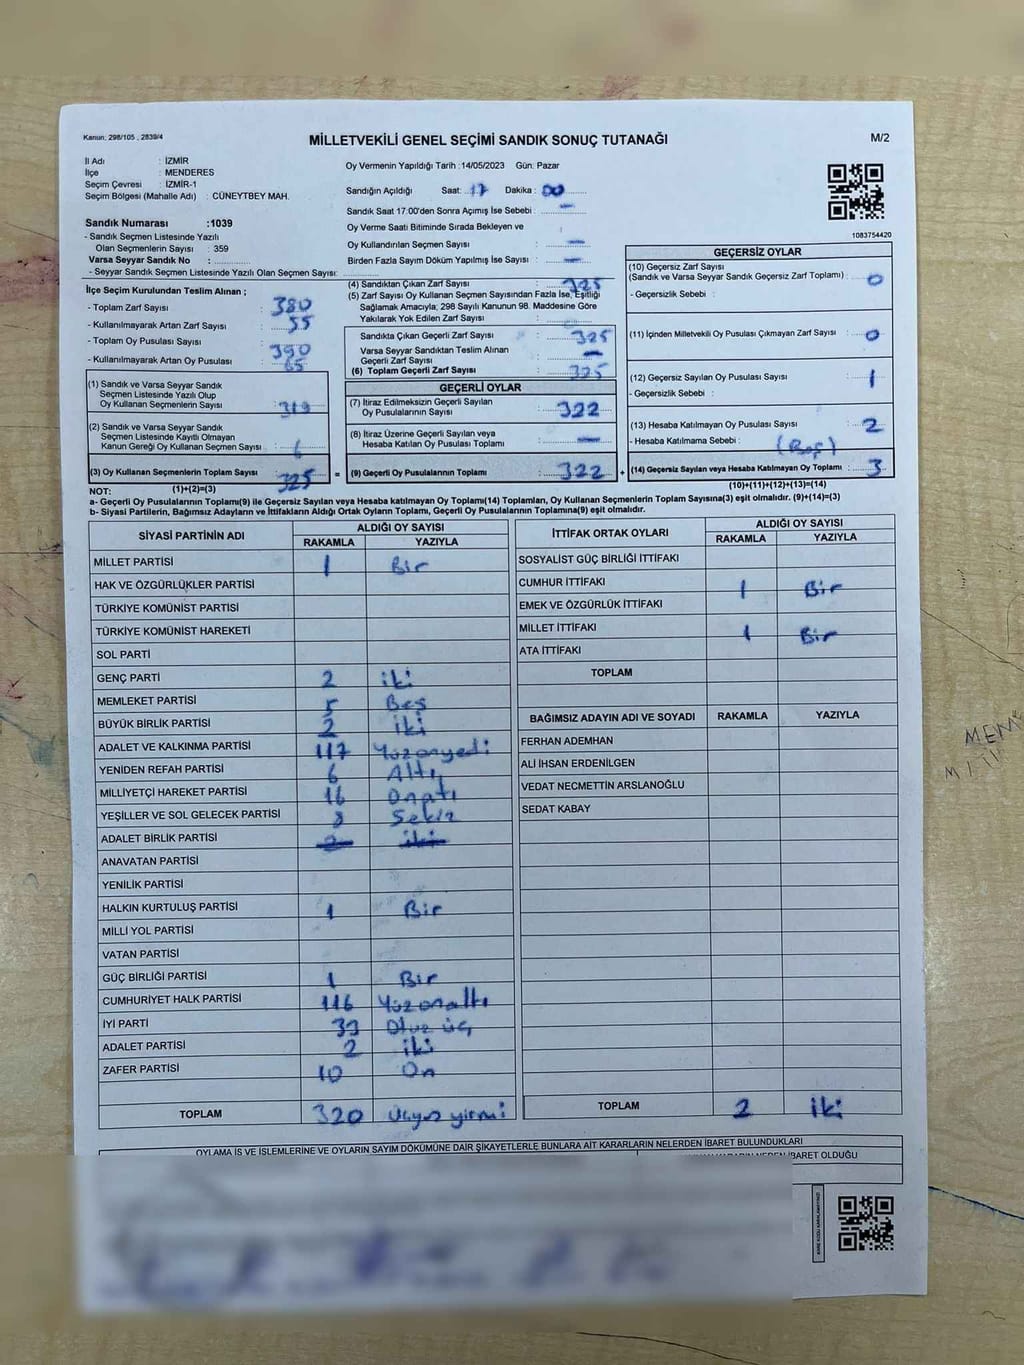 Kanun: 298/105 , 2839/4
MİLLETVEKİLİ GENEL SEÇİMİ SANDIK SONUÇ TUTANAĞI
M/2
İl Adı : İZMİR
İlçe : MENDERES
Seçim Çevresi : İZMİR-1
Seçim Bölgesi (Mahalle Adı) : CÜNEYTBEY MAH.
Sandık Numarası :1039
- Sandık Seçmen Listesinde Yazılı
Olan Seçmenlerin Sayısı : 359
Varsa Seyyar Sandık No :
- Seyyar Sandık Seçmen Listesinde Yazılı Olan Seçmen Sayısı:
Oy Vermenin Yapıldığı Tarih :14/05/2023 Gün: Pazar
Sandığın Açıldığı Saat: 17 Dakika : 00
Sandık Saat 17:00'den Sonra Açımış İse Sebebi : —
Oy Verme Saati Bitiminde Sırada Bekleyen ve
Oy Kullandırılan Seçmen Sayısı : —
Birden Fazla Sayım Döküm Yapılmış İse Sayısı : —
1083754420
İlçe Seçim Kurulundan Teslim Alınan ;
- Toplam Zarf Sayısı : 380
- Kullanılmayarak Artan Zarf Sayısı : 55
- Toplam Oy Pusulası Sayısı : 390
- Kullanılmayarak Artan Oy Pusulası : 65
(1) Sandık ve Varsa Seyyar Sandık
Seçmen Listesinde Yazılı Olup
Oy Kullanan Seçmenlerin Sayısı : 319
(2) Sandık ve Varsa Seyyar Sandık
Seçmen Listesinde Kayıtlı Olmayan
Kanun Gereği Oy Kullanan Seçmen Sayısı : 6
(3) Oy Kullanan Seçmenlerin Toplam Sayısı : 325
(1)+(2)=(3)
(4) Sandıktan Çıkan Zarf Sayısı : 325
(5) Zarf Sayısı Oy Kullanan Seçmen Sayısından Fazla İse, Eşitliği
Sağlamak Amacıyla; 298 Sayılı Kanunun 98. Maddesine Göre
Yakılarak Yok Edilen Zarf Sayısı :
Sandıkta Çıkan Geçerli Zarf Sayısı : 325
Varsa Seyyar Sandıktan Teslim Alınan
Geçerli Zarf Sayısı : —
(6) Toplam Geçerli Zarf Sayısı : 325
GEÇERLİ OYLAR
(7) İtiraz Edilmeksizin Geçerli Sayılan
Oy Pusulalarının Sayısı : 322
(8) İtiraz Üzerine Geçerli Sayılan veya
Hesaba Katılan Oy Pusulası Toplamı : —
= (9) Geçerli Oy Pusulalarının Toplamı : 322 +
GEÇERSİZ OYLAR
(10) Geçersiz Zarf Sayısı
(Sandık ve Varsa Seyyar Sandık Geçersiz Zarf Toplamı) : 0
- Geçersizlik Sebebi :
(11) İçinden Milletvekili Oy Pusulası Çıkmayan Zarf Sayısı : 0
(12) Geçersiz Sayılan Oy Pusulası Sayısı : 1
- Geçersizlik Sebebi :
(13) Hesaba Katılmayan Oy Pusulası Sayısı : 2
- Hesaba Katılmama Sebebi : (Boş)
(14) Geçersiz Sayılan veya Hesaba Katılmayan Oy Toplamı : 3
(10)+(11)+(12)+(13)=(14)
NOT:
a- Geçerli Oy Pusulalarının Toplamı(9) ile Geçersiz Sayılan veya Hesaba katılmayan Oy Toplamı(14) Toplamları, Oy Kullanan Seçmenlerin Toplam Sayısına(3) eşit olmalıdır. (9)+(14)=(3)
b- Siyasi Partilerin, Bağımsız Adayların ve İttifakların Aldığı Ortak Oyların Toplamı, Geçerli Oy Pusulalarının Toplamına(9) eşit olmalıdır.
SİYASİ PARTİNİN ADI ALDIĞI OY SAYISI
RAKAMLA YAZIYLA
MİLLET PARTİSİ 1 Bir
HAK VE ÖZGÜRLÜKLER PARTİSİ
TÜRKİYE KOMÜNİST PARTİSİ
TÜRKİYE KOMÜNİST HAREKETİ
SOL PARTİ
GENÇ PARTİ 2 iki
MEMLEKET PARTİSİ 5 Beş
BÜYÜK BİRLİK PARTİSİ 2 iki
ADALET VE KALKINMA PARTİSİ 117 Yüzonyedi
YENİDEN REFAH PARTİSİ 6 Altı
MİLLİYETÇİ HAREKET PARTİSİ 16 Onaltı
YEŞİLLER VE SOL GELECEK PARTİSİ 8 Sekiz
ADALET BİRLİK PARTİSİ 2 iki
ANAVATAN PARTİSİ
YENİLİK PARTİSİ
HALKIN KURTULUŞ PARTİSİ 1 Bir
MİLLİ YOL PARTİSİ
VATAN PARTİSİ
GÜÇ BİRLİĞİ PARTİSİ 1 Bir
CUMHURİYET HALK PARTİSİ 116 Yüzonaltı
İYİ PARTİ 33 Otuz üç
ADALET PARTİSİ 2 iki
ZAFER PARTİSİ 10 On
TOPLAM 320 üçyüz yirmi
İTTİFAK ORTAK OYLARI ALDIĞI OY SAYISI
RAKAMLA YAZIYLA
SOSYALİST GÜÇ BİRLİĞİ İTTİFAKI
CUMHUR İTTİFAKI 1 Bir
EMEK VE ÖZGÜRLÜK İTTİFAKI
MİLLET İTTİFAKI 1 Bir
ATA İTTİFAKI
TOPLAM
BAĞIMSIZ ADAYIN ADI VE SOYADI RAKAMLA YAZIYLA
FERHAN ADEMHAN
ALİ İHSAN ERDENİLGEN
VEDAT NECMETTİN ARSLANOĞLU
SEDAT KABAY
TOPLAM 2 iki
OYLAMA İŞ VE İŞLEMLERİNE VE OYLARIN SAYIM DÖKÜMÜNE DAİR ŞİKAYETLERLE BUNLARA AİT KARARLARIN NELERDEN İBARET BULUNDUKLARI
İBARET OLDUĞU